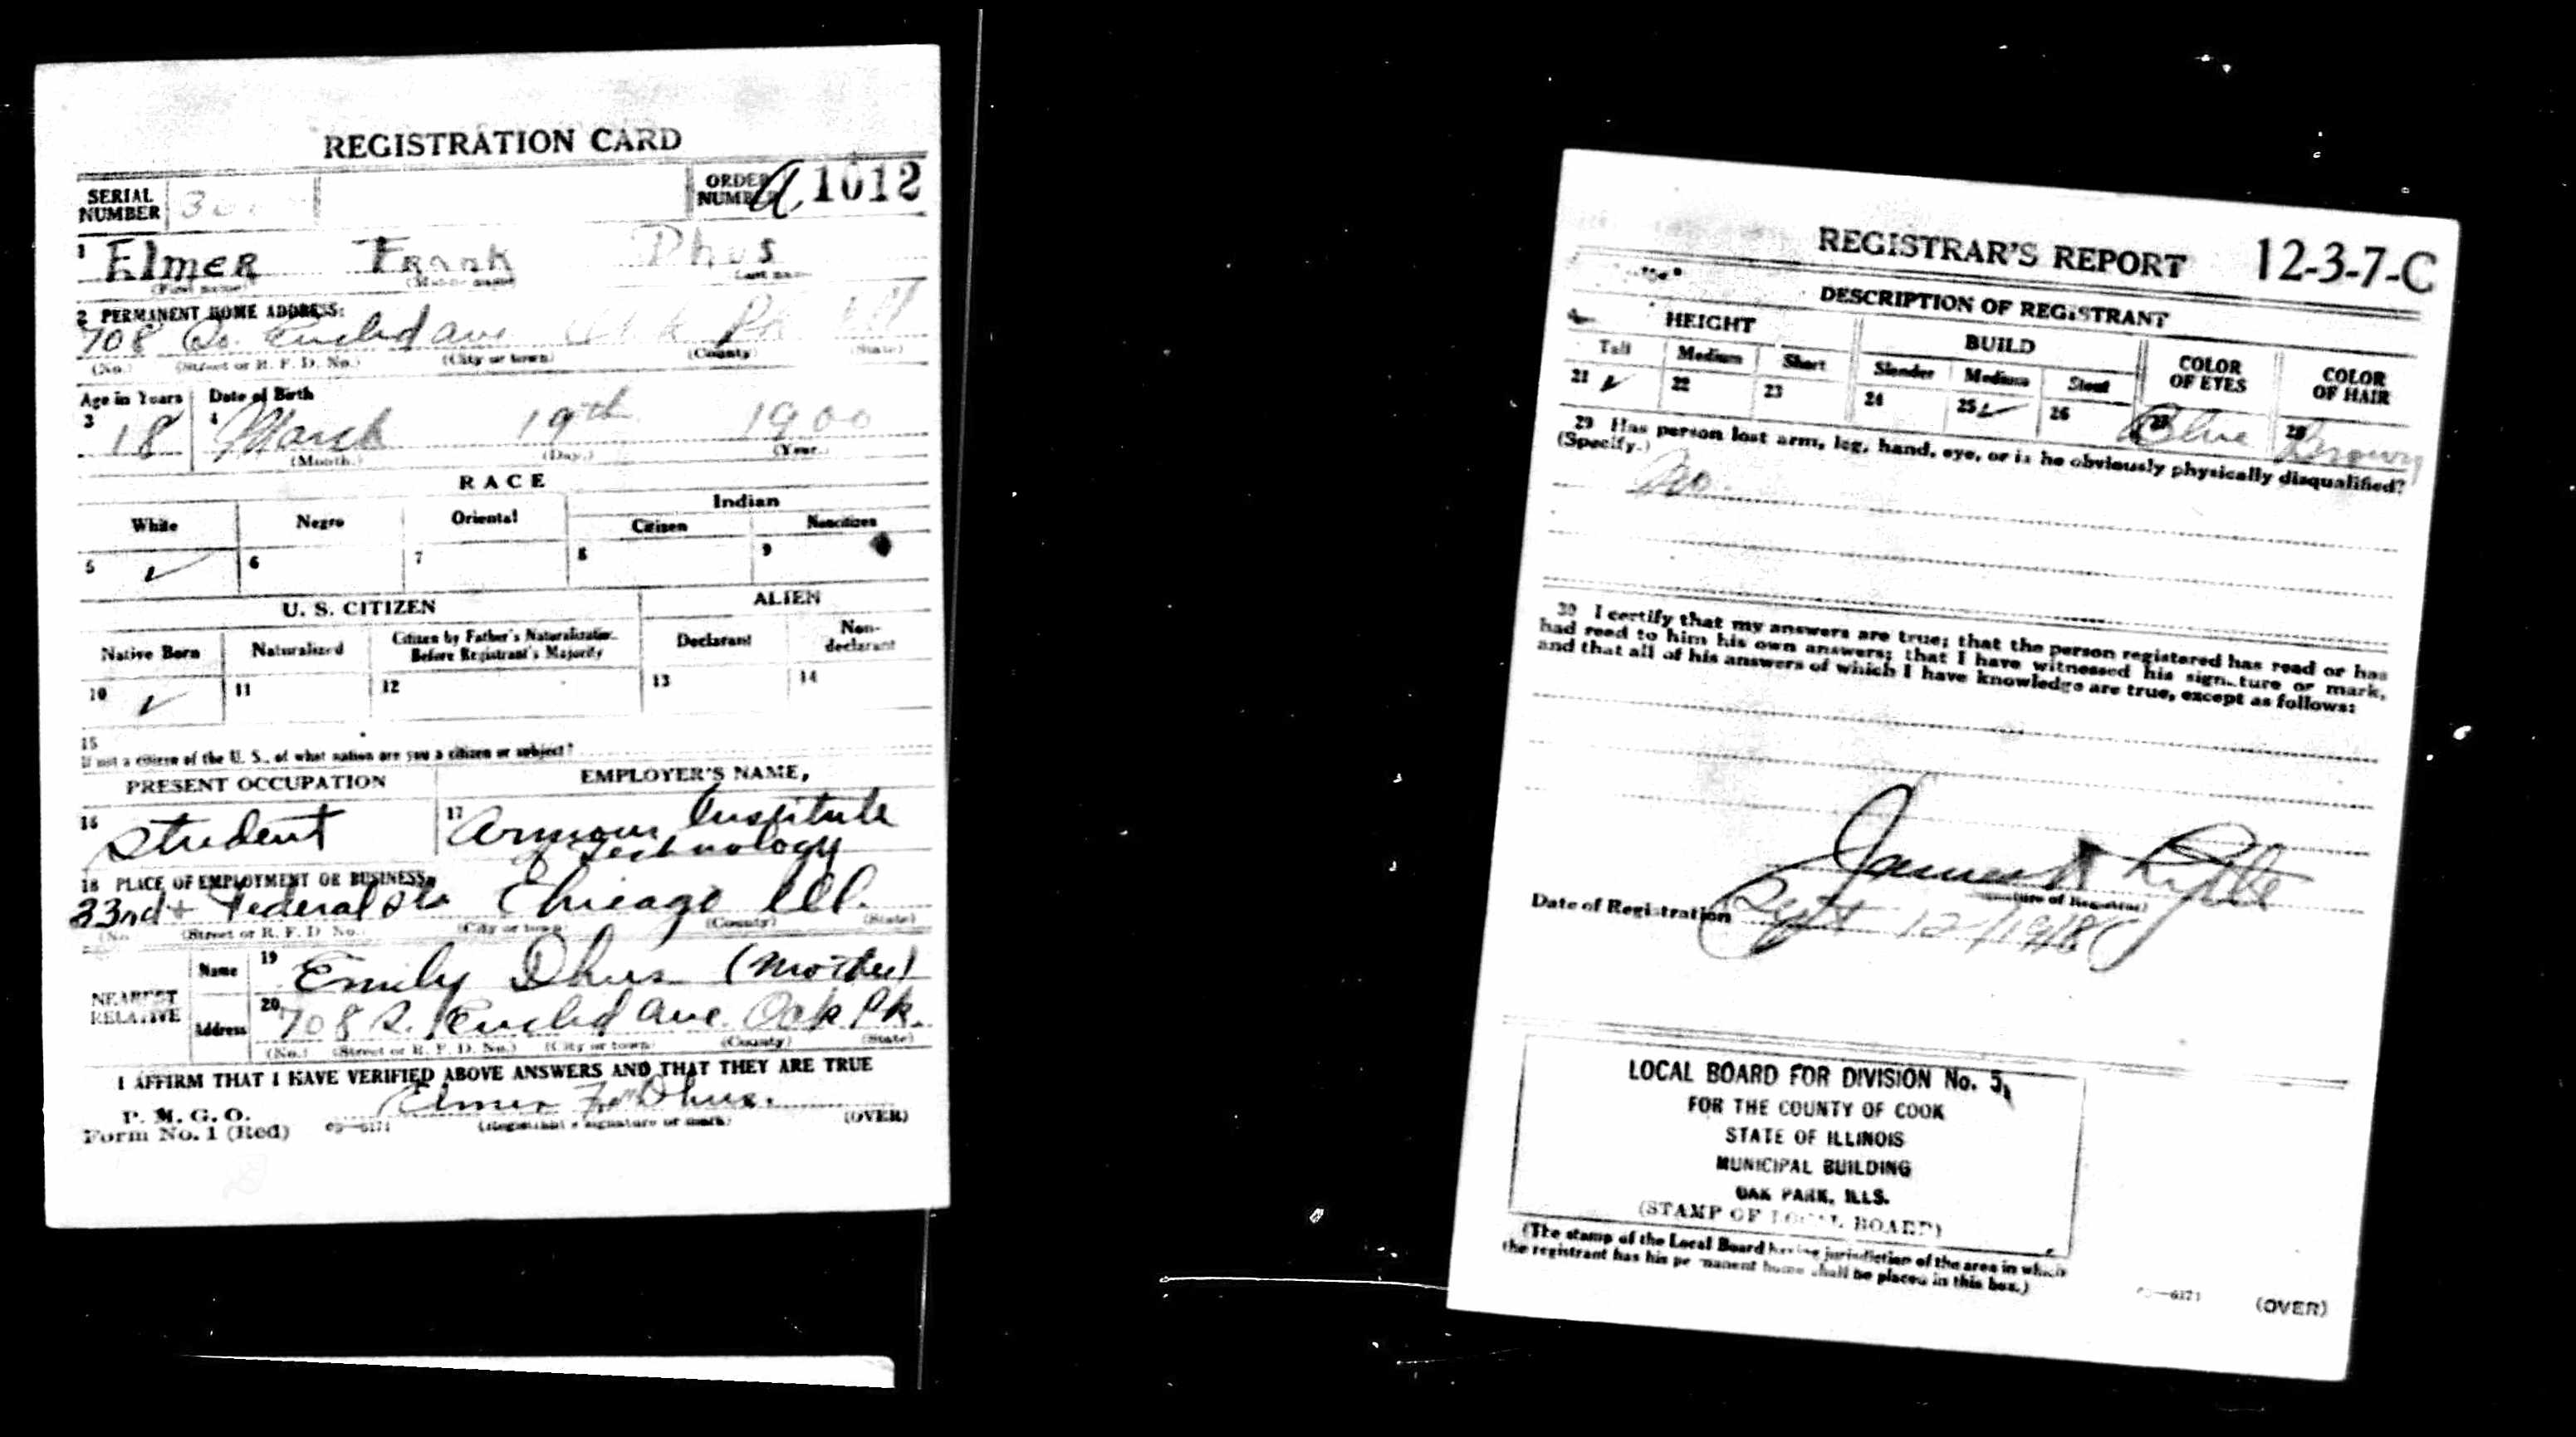 REGISTRATION CARD
SERIAL NUMBER
ORDER NUMBER A 1012
1 Elmer Frank Dhus
(First name) (Middle name) Last name
2 PERMANENT HOME ADDRESS:
708 So. Euclid ave Oak Pk Ill
(No.) (Street or R. F. D. No.) (City or town) (County) (State)
Age in Years Date of Birth
3 18 4 March 19th 1900
(Month.) (Day.) (Year.)
RACE
White Negro Oriental Indian
Citizen Noncitizen
5 ✓ 6 7 8 9
U. S. CITIZEN ALIEN
Native Born Naturalized Citizen by Father's Naturalization Before Registrant's Majority Declarant Non-declarant
10 ✓ 11 12 13 14
15
If not a citizen of the U. S., of what nation are you a citizen or subject?
PRESENT OCCUPATION EMPLOYER'S NAME,
16 Student 17 Armour Institute
of Technology
18 PLACE OF EMPLOYMENT OR BUSINESS
33rd + Federal Sts Chicago Ill.
(No. (Street or R. F. D. No.) (City or town) (County) (State)
NEAREST RELATIVE
Name 19 Emily Dhus (Mother)
Address 20 708 S. Euclid ave. Oak Pk.
(No.) (Street or R. F. D. No.) (City or town) (County) (State)
I AFFIRM THAT I HAVE VERIFIED ABOVE ANSWERS AND THAT THEY ARE TRUE
Elmer F. Dhus.
P. M. G. O.
Form No. 1 (Red) (Registrant's signature or mark) (OVER)
REGISTRAR'S REPORT 12-3-7-C
DESCRIPTION OF REGISTRANT
HEIGHT BUILD COLOR OF EYES COLOR OF HAIR
Tall Medium Short Slender Medium Stout
21 ✓ 22 23 24 25 ✓ 26 27 Blue 28 Brown
29 Has person lost arm, leg, hand, eye, or is he obviously physically disqualified?
(Specify.) No.
30 I certify that my answers are true; that the person registered has read or has
had read to him his own answers; that I have witnessed his signature or mark,
and that all of his answers of which I have knowledge are true, except as follows:
James
(Signature of Registrar)
Date of Registration Sept 12/1918
LOCAL BOARD FOR DIVISION No. 5,
FOR THE COUNTY OF COOK
STATE OF ILLINOIS
MUNICIPAL BUILDING
OAK PARK, ILLS.
(STAMP OF LOCAL BOARD)
(The stamp of the Local Board having jurisdiction of the area in which
the registrant has his permanent home shall be placed in this box.)
(OVER)